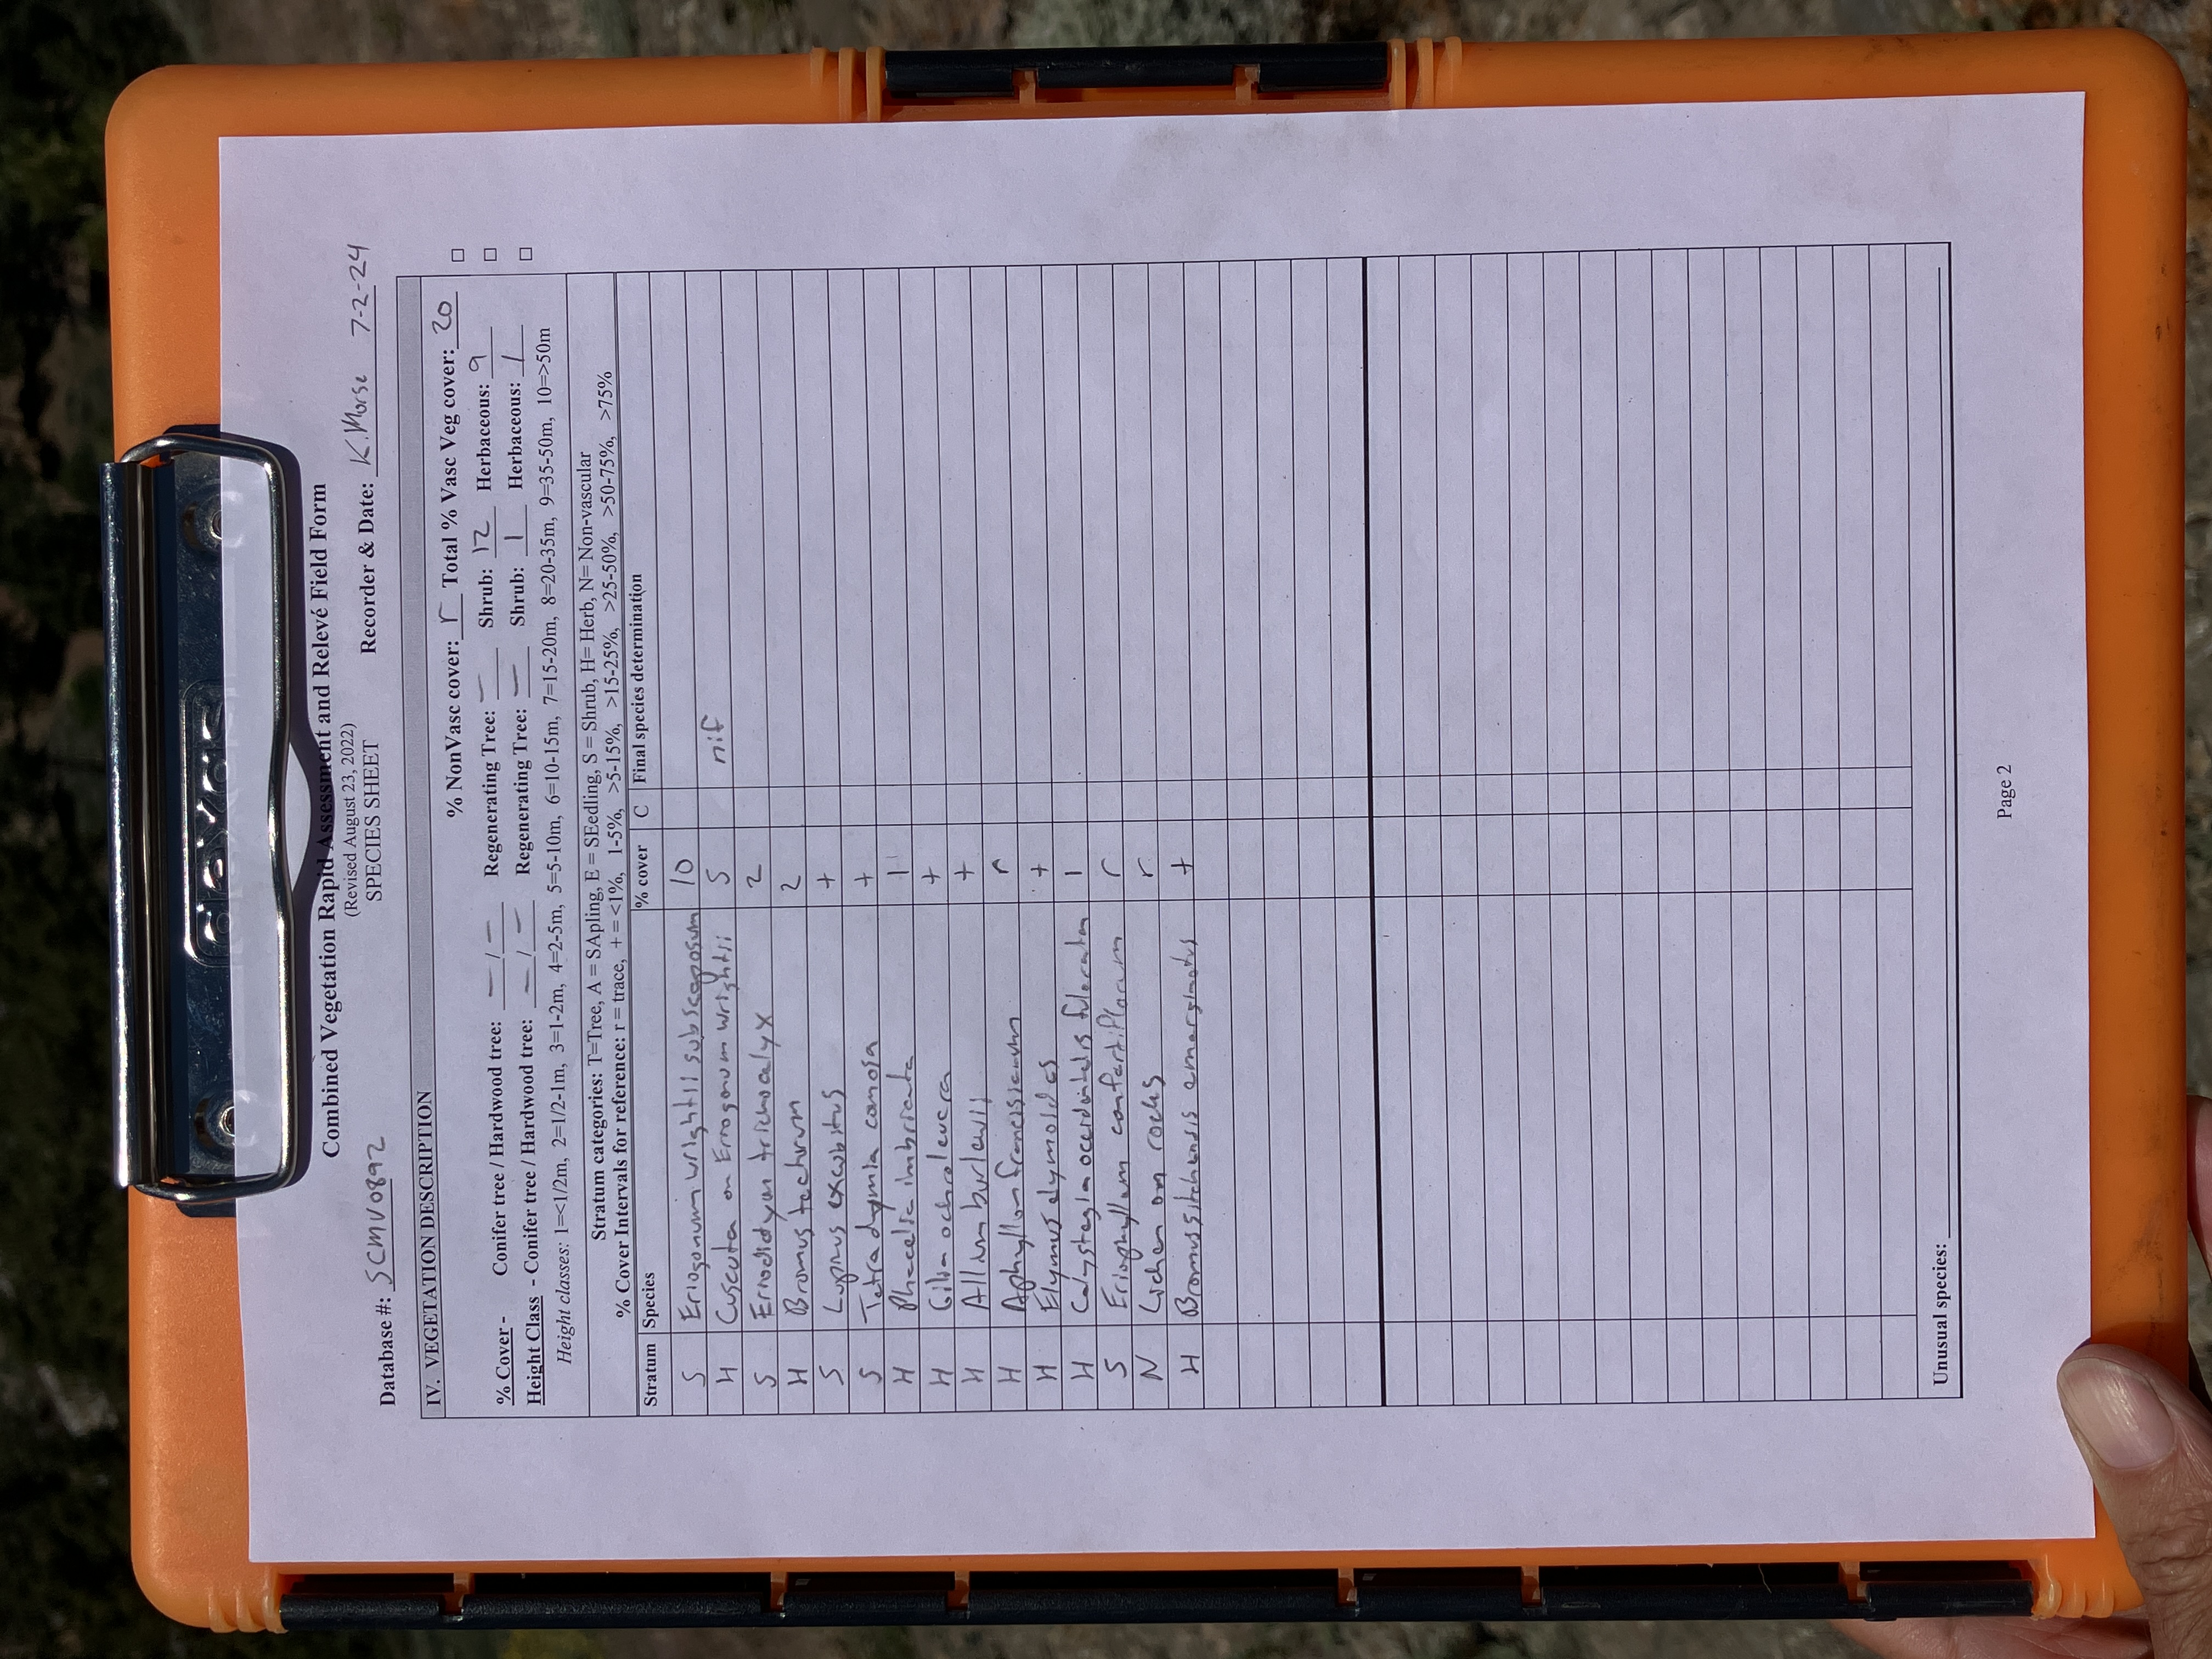 Saxus
Combined Vegetation Rapid Assessment and Relevé Field Form
(Revised August 23, 2022)
SPECIES SHEET
Database #: SCMV0892 Recorder & Date: K.Morse 7-2-24
IV. VEGETATION DESCRIPTION
% NonVasc cover: r Total % Vasc Veg cover: 20 □
% Cover - Conifer tree / Hardwood tree: – / – Regenerating Tree: – Shrub: 12 Herbaceous: 9 □
Height Class - Conifer tree / Hardwood tree: – / – Regenerating Tree: – Shrub: 1 Herbaceous: 1 □
Height classes: 1=<1/2m, 2=1/2-1m, 3=1-2m, 4=2-5m, 5=5-10m, 6=10-15m, 7=15-20m, 8=20-35m, 9=35-50m, 10=>50m
Stratum categories: T=Tree, A = SApling, E = SEedling, S = Shrub, H= Herb, N= Non-vascular
% Cover Intervals for reference: r = trace, + = <1%, 1-5%, >5-15%, >15-25%, >25-50%, >50-75%, >75%
Stratum Species % cover C Final species determination
S Eriogonum wrightii subscaposum 10
H Cuscuta on Eriogonum wrightii 5 nif
S Eriodictyon trichocalyx 2
H Bromus tectorum 2
S Lupinus excubitus +
S Tetradymia canosa +
H Phacelia imbricata 1
H Gilia ochroleuca +
H Allium burlewii +
H Aphyllon franciscanum r
H Elymus elymoides +
H Calystegia occidentalis fulcrata 1
S Eriophyllum confertiflorum r
N Lichen on rocks r
H Bromus sitchensis emarginatus +
Unusual species:
Page 2